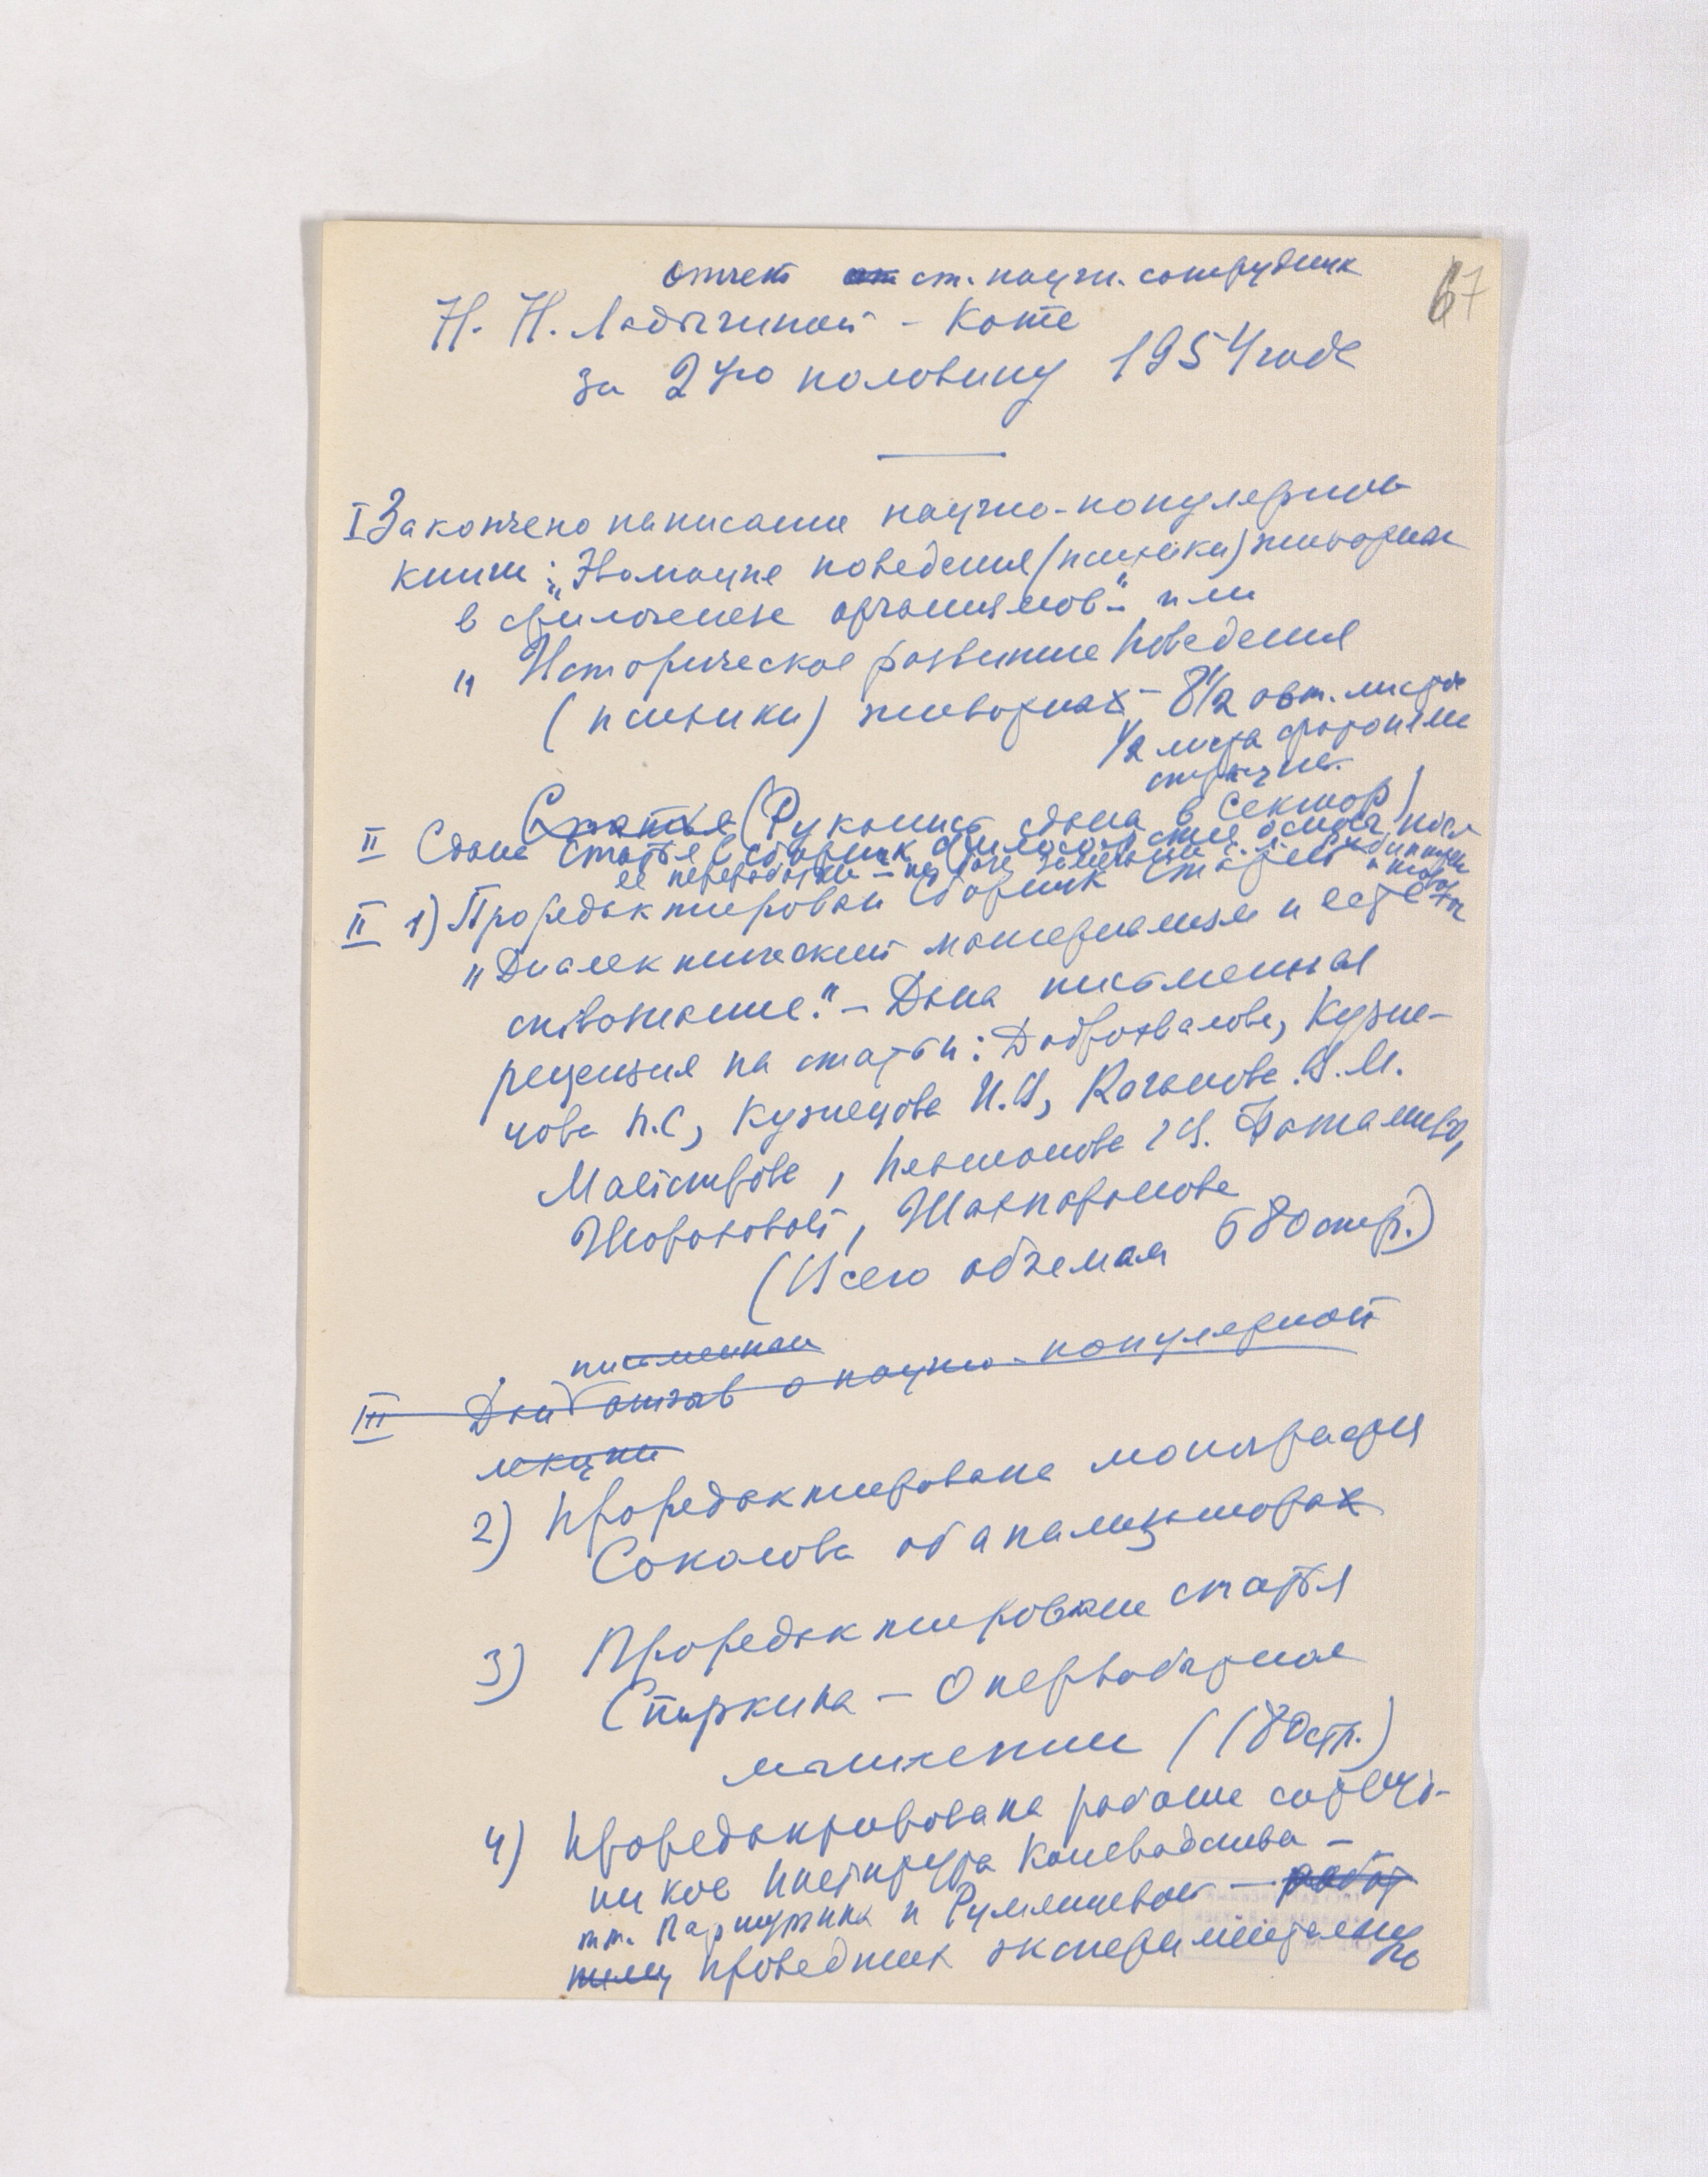 67
Отчет ст. научн. сотрудник
Н. Н. Ладыгиной-Котс
за 2ую половину 1954 года
I Закончено написание научно-популярной
книги: "Эволюция поведения (психики) животных
в филогенезе организмов" или
"Историческое развитие поведения
(психики) животных - 8 1/2 авт. листа
1/2 листа фотоиллю
страции.
Статья (Рукопись сдана в Сектор)
II Сдана статья в сборник Философские после
ее переработки
II 1) Проредактирован сборник статей
"Диалектический материализм и естест
вознание." - Дана письменная
рецензия на статьи: Доброхвалова, Кузне-
цова П.С, Кузнецова И.В, Каганова В.М.
Майстрова, Плотникова, Фаталиева,
Шороховой, Шахпаронова
(Всего объемам 680 стр.)
письменный
III Дан отзыв о научно-популярной
лекции
2) Проредактирована монография
Соколова об анализаторах
3) Проредактирована статья
Спиркина - О первобытное
мышлении (180 стр.)
4) Проредактирована работа сотруд-
ников Института Коневодства -
тт. Паршутина и Румянцевой - работ
проведших экспериментальную